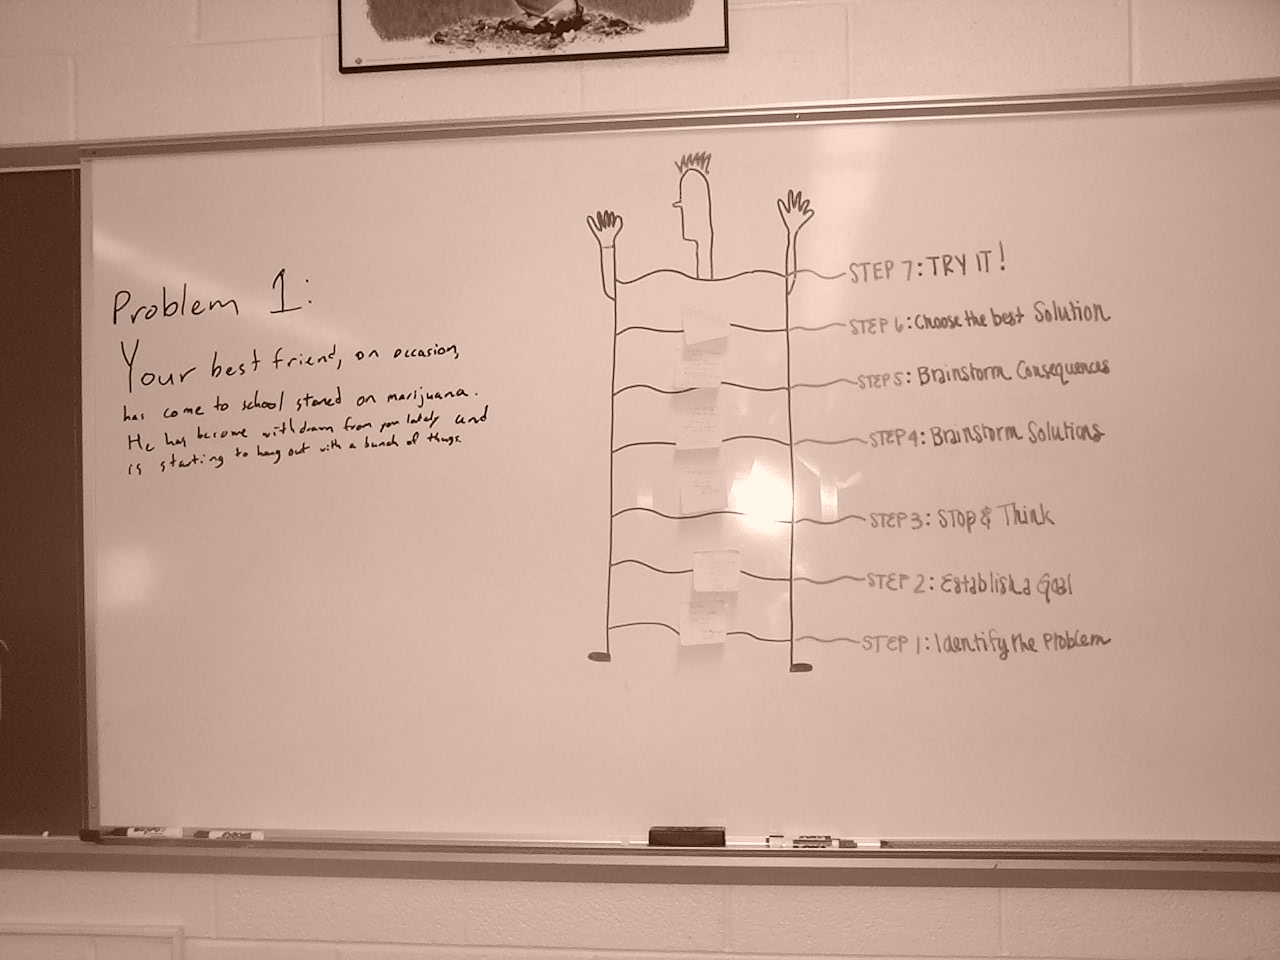 Problem 1:
Your best friend, on occasion,
has come to school stoned on marijuana.
He has become withdrawn from you lately and
is starting to hang out with a bunch of thugs.
STEP 7: TRY IT!
STEP 6: Choose the best Solution
STEP 5: Brainstorm Consequences
STEP 4: Brainstorm Solutions
STEP 3: STOP & Think
STEP 2: Establish a Goal
STEP 1: Identify the Problem